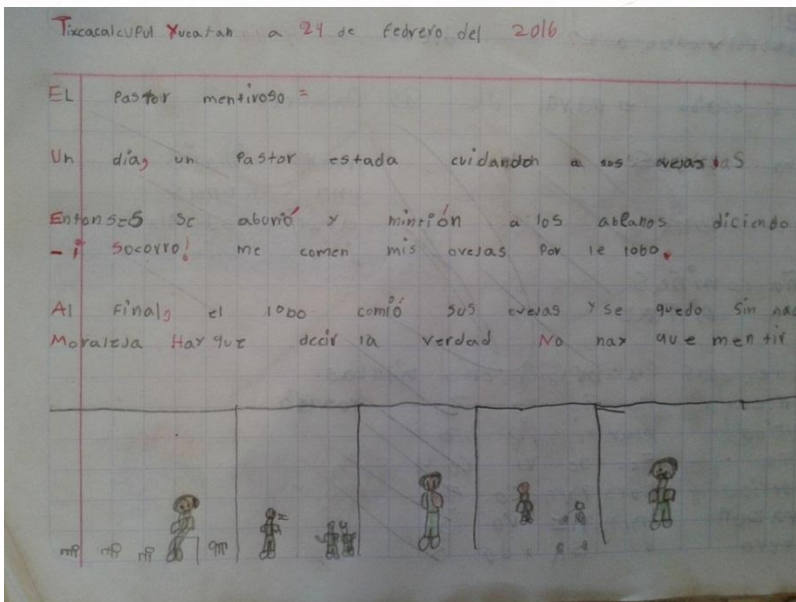 Tixcacalcupul Yucatan a 24 de Febrero del 2016
EL Pastor mentiroso =
Un día, un Pastor estada cuidandon a sus ovejas
Entonses se aburió y mintión a los diciendo
- ¡Socorro! me comen mis ovejas Por le lobo.
Al Final, el lobo comió sus ovejas y se quedo sin
Moraleja Hay que decir la verdad No hay que mentir